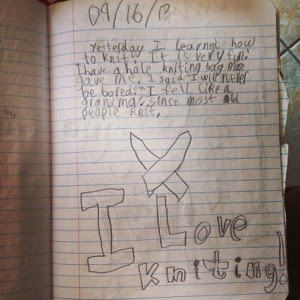 09/16/13
Yesterday I learned how
to knit. It is very fun.
I have a hole kniting bag mom
gave me. I said "I will never
be bored." I fell like a
grandma. since most old
people knit.
I Love
kniting!